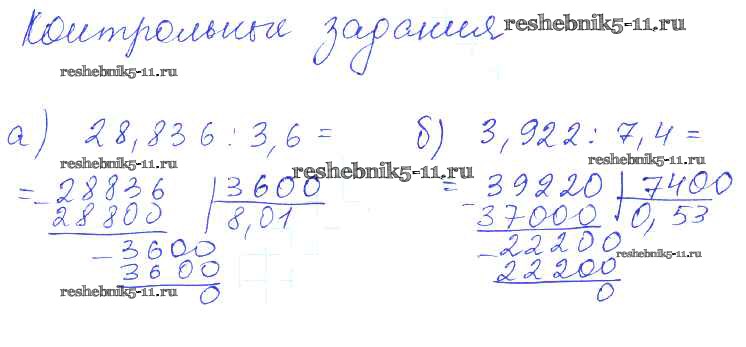 Контрольные задания
reshebnik5-11.ru
reshebnik5-11.ru
а) 28,836 : 3,6 =
б) 3,922 : 7,4 =
reshebnik5-11.ru
reshebnik5-11.ru
reshebnik5-11.ru
= - 28836 | 3600
28800 | 8,01
- 3600
3600
0
= - 39220 | 7400
37000 | 0,53
- 22200
22200
0
reshebnik5-11.ru
reshebnik5-11.ru